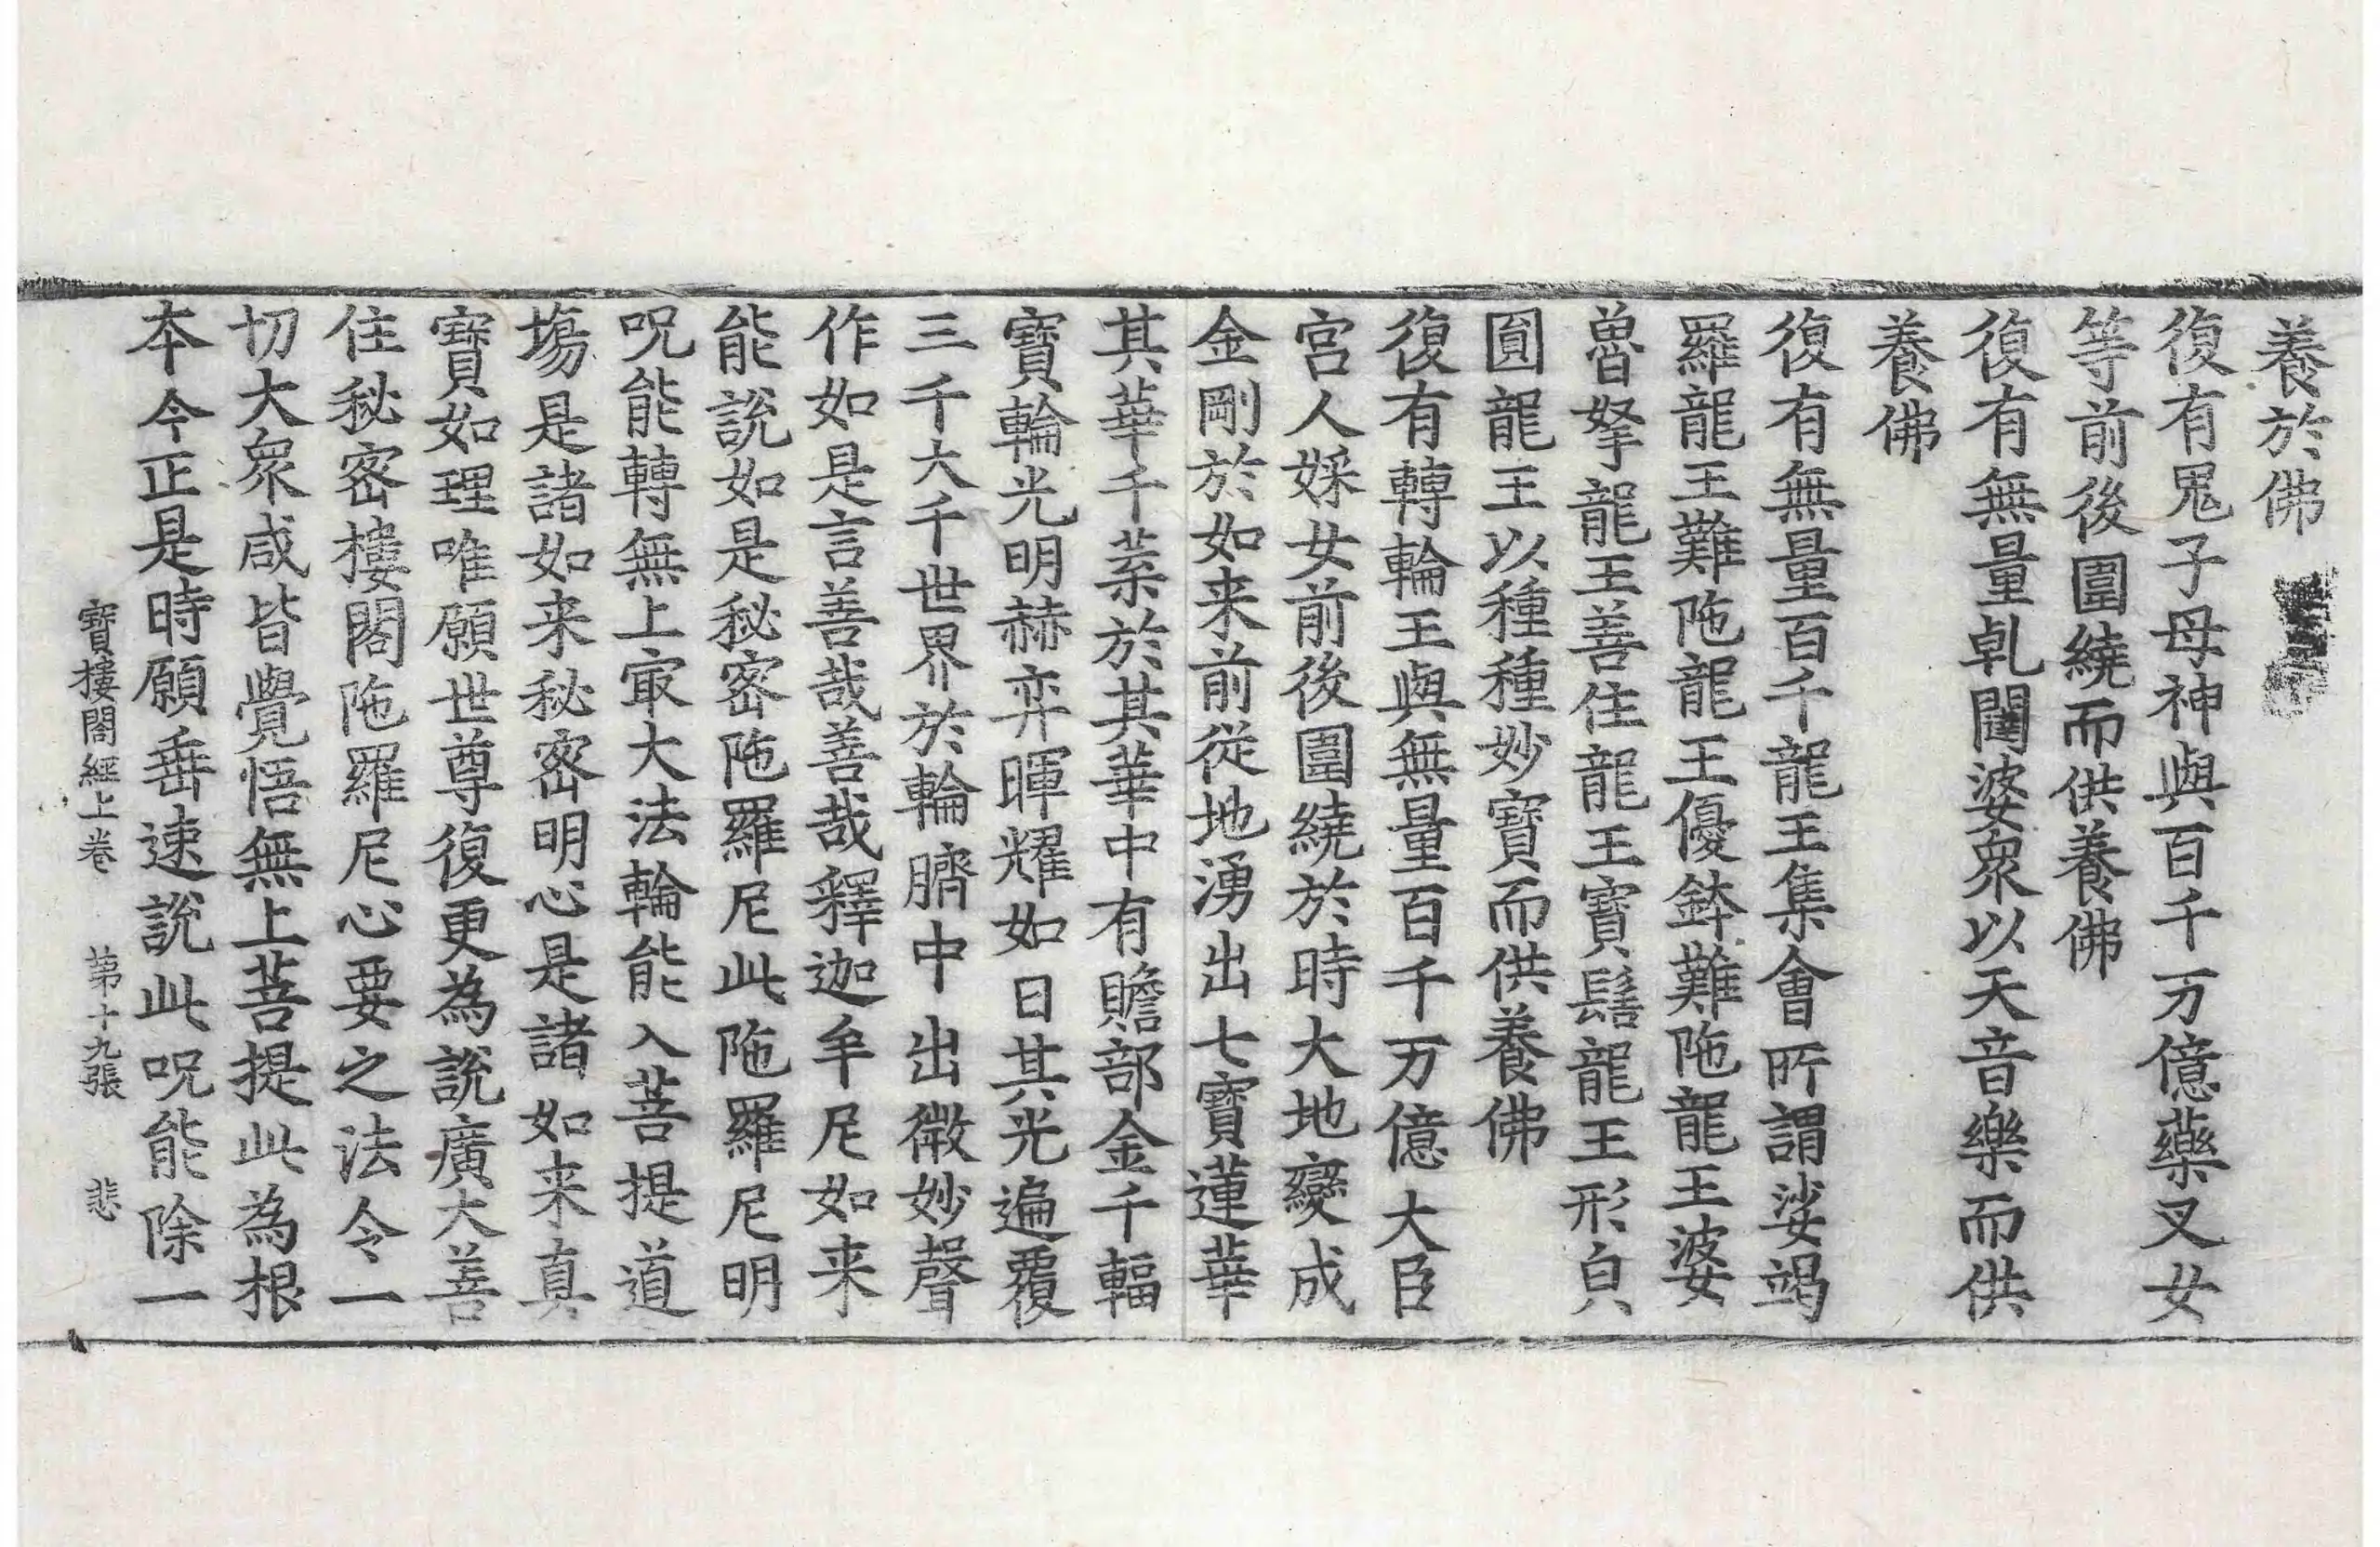 養於佛
復有鬼子母神與百千万億藥叉女
等前後圍繞而供養佛
復有無量乹闥婆衆以天音樂而供
養佛
復有無量百千龍王集會所謂娑竭
羅龍王難陁龍王優鉢難陁龍王婆
魯拏龍王善住龍王寶髻龍王形皃
圓龍王以種種妙寶而供養佛
復有轉輪王與無量百千万億大臣
宮人婇女前後圍繞於時大地變成
金剛於如来前從地湧出七寶蓮華
其華千葉於其華中有贍部金千輻
寶輪光明赫弈暉耀如日其光遍覆
三千大千世界於輪臍中出微妙聲
作如是言善哉善哉釋迦牟尼如来
能說如是秘密陁羅尼此陁羅尼明
呪能轉無上㝡大法輪能入菩提道
塲是諸如来秘密明心是諸如来真
寶如理唯願世尊復更為說廣大善
住秘密樓閣陁羅尼心要之法令一
切大衆咸皆覺悟無上菩提此為根
本今正是時願垂速說此呪能除一
寶樓閣經上卷 第十九張 悲